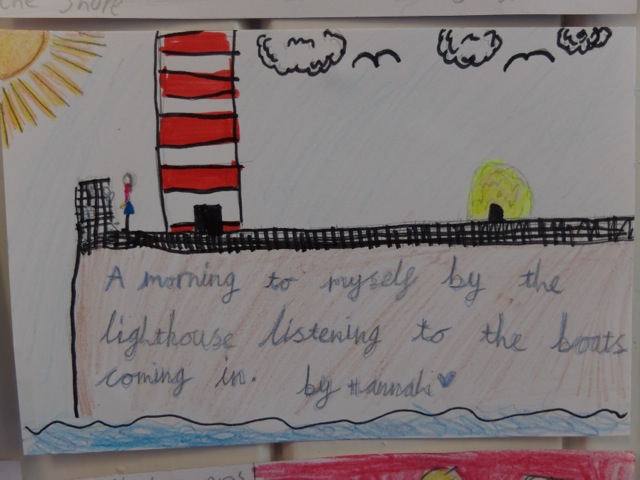 the Shore
A morning to myself by the
lighthouse listening to the boats
coming in. by Hannah